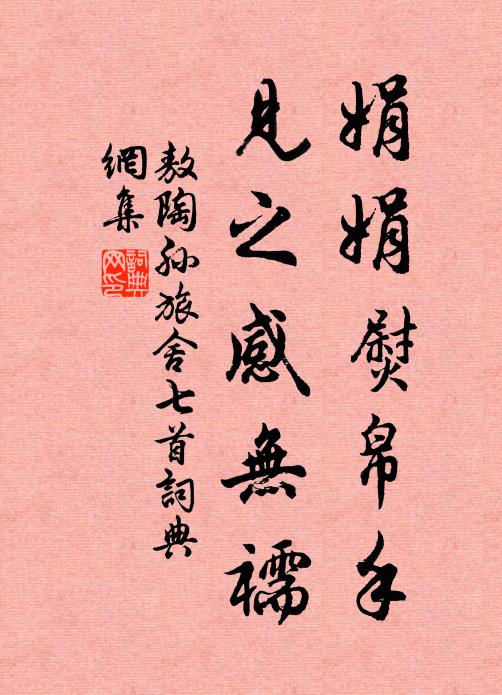 娟娟熨帛手
見之感無襦
敖陶孙旅舍七首詞典
網集
詞典
网印